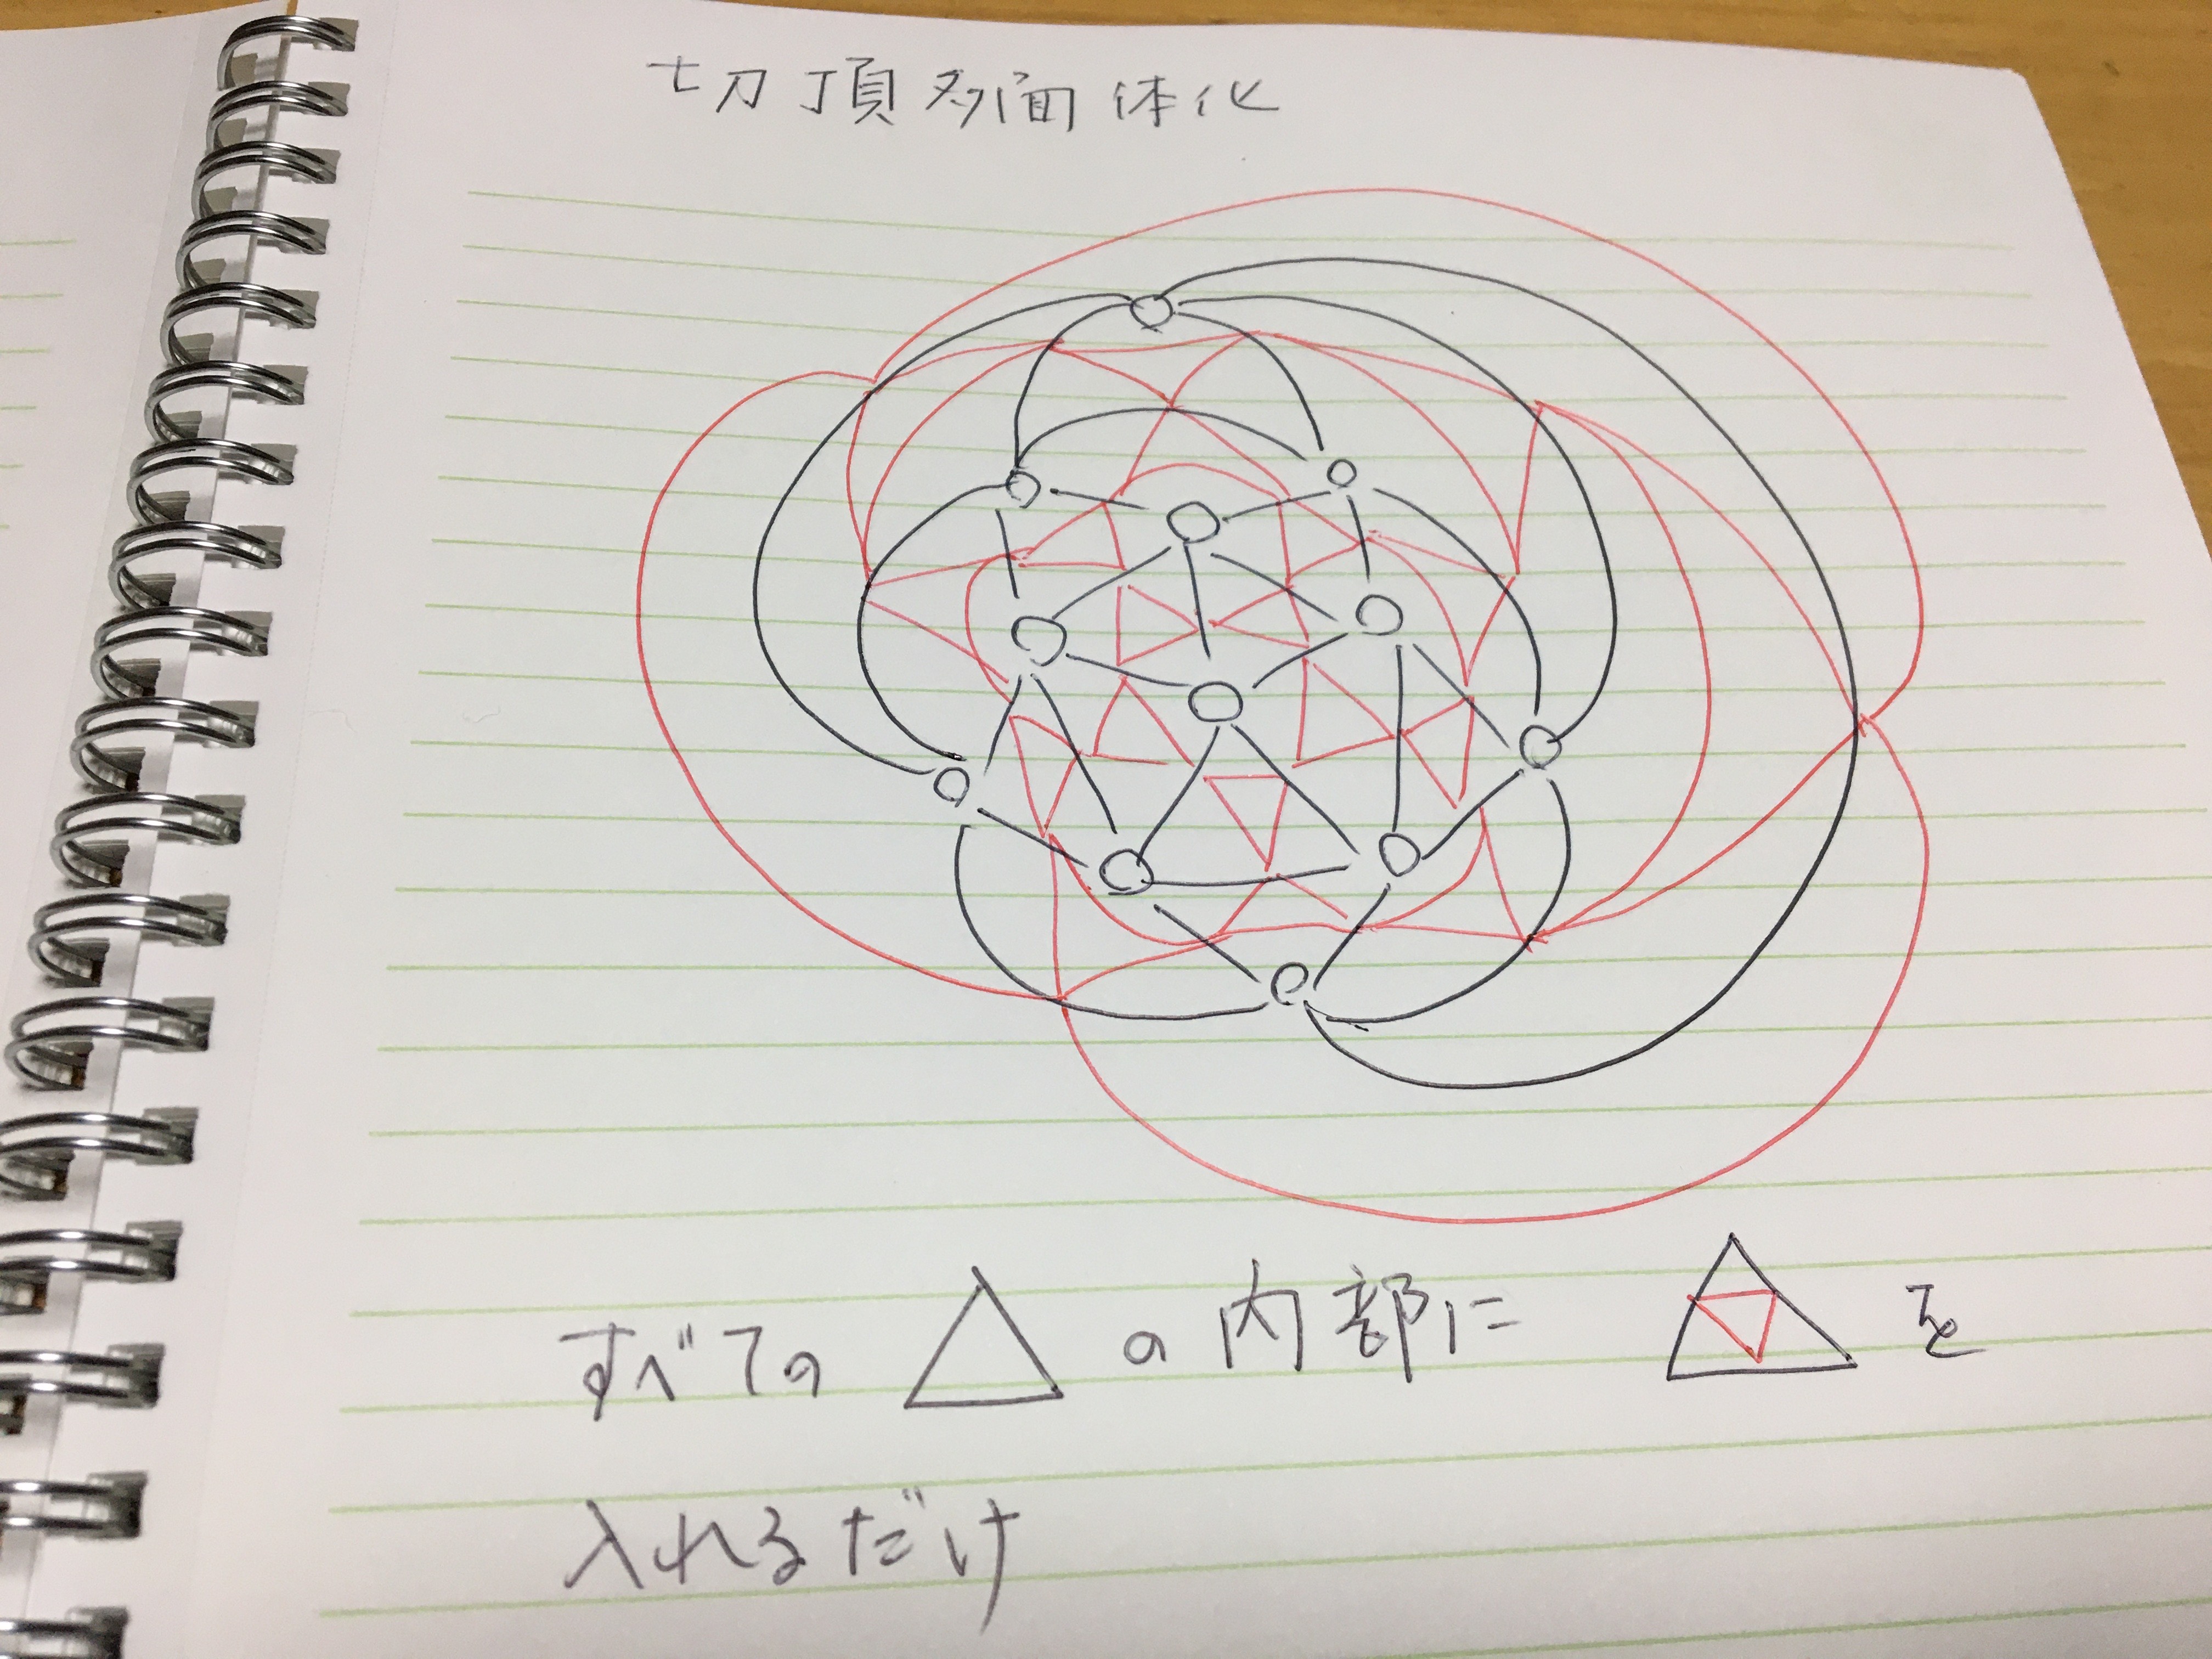 切頂多面体化
すべての△の内部に を
入れるだけ